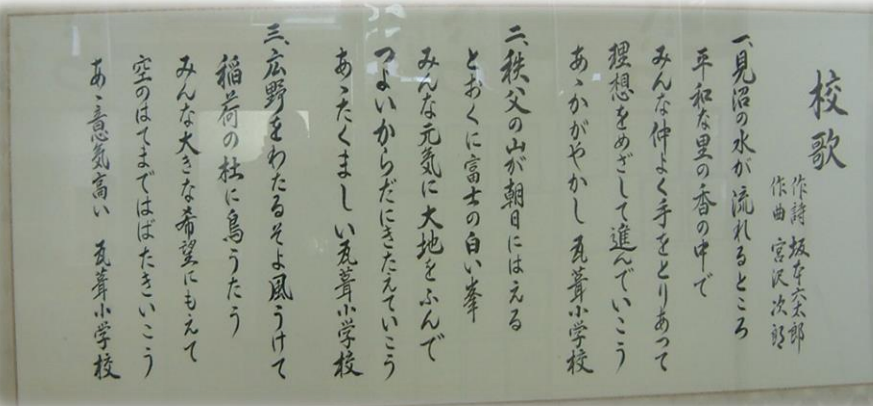 校歌
作詩 坂本六太郎
作曲 宮沢次郎
一、見沼の水が流れるところ
平和な里の香の中で
みんな仲よく手をとりあって
理想をめざして進んでいこう
あゝかがやかし 瓦葺小学校
二、秩父の山が朝日にはえる
とおくに富士の白い峯
みんな元気に大地をふんで
つよいからだにきたえていこう
あゝたくましい瓦葺小学校
三、広野をわたるそよ風うけて
稲荷の杜に鳥うたう
みんな大きな希望にもえて
空のはてまではばたきいこう
あゝ意気高い 瓦葺小学校